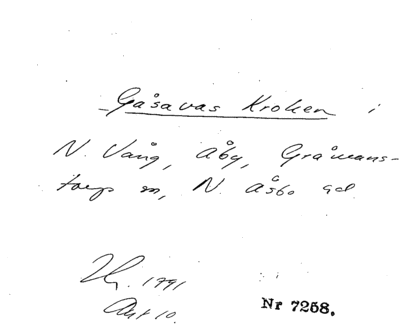 Gåsavas Kroken i
N. Vång, Åby, Gråmans-
torps sn, N. Åsbo hd
Hy. 1791
Akt 10.
Nr 7258.